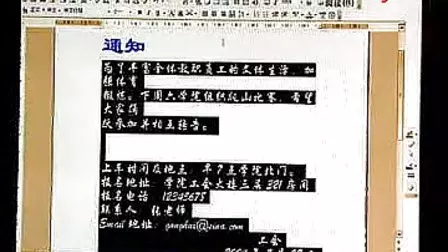 通知
为了丰富全体教职员工的文体生活，加
强体育
锻炼。下周六学院组织爬山比赛，希望
大家踊
跃参加并相互转告。
上车时间及地点：早7点学院北门。
报名地址：学院工会大楼三层321房间
报名电话：12345678
联系人：张老师
Email地址：
工会